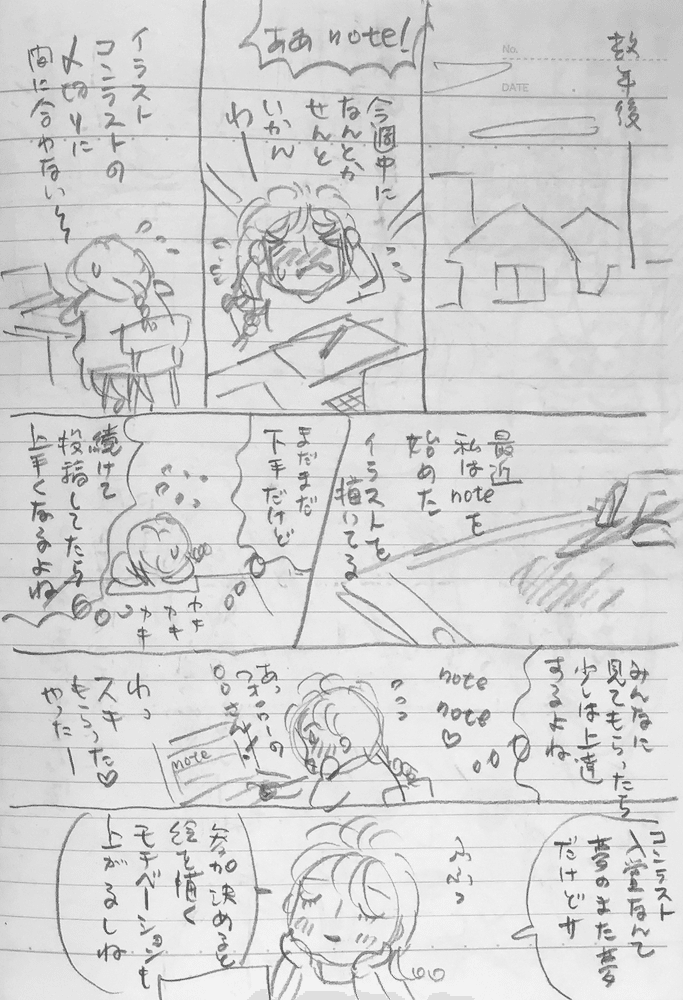 数年後
No.
DATE
ああ note!
今週中に
なんとか
せんと
いかん
わ
イラスト
コンテストの
〆切りに
間に合わない〜
最近
私はnoteを
始めた
イラストを
描いてる
まだまだ
下手だけど
続けて
投稿してたら
上手くなるよね
カキ
カキ
カキ
みんなに
見てもらったら
少しは上達
するよね
note
note
♡
あっ
フォロワーの
○○さん
note
わっ
スキ
もらった♡
やったー
コンテスト
入賞なんて
夢のまた夢
だけどサ
ふふっ
参加決めると
絵を描く
モチベーションも
上がるしね